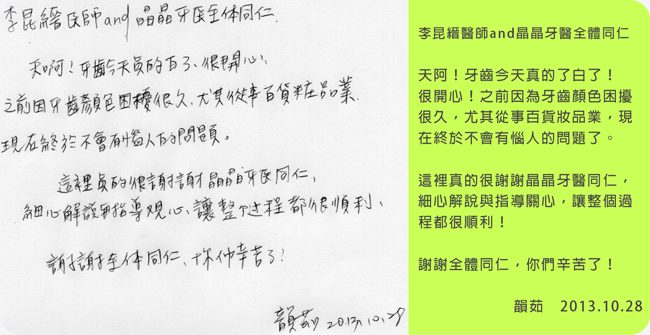 李昆縉医師and晶晶牙医全体同仁
天啊！牙齒今天真的白了、很開心、
之前因牙齒顏色困擾很久、尤其從事百貨粧品業、
現在終於不會有惱人的問題。
這裡真的很謝謝晶晶牙医同仁、
細心解說与指導观心、讓整个过程都很順利、
謝謝全体同仁、你们辛苦了！
韻茹 2013.10.28
李昆縉醫師and晶晶牙醫全體同仁
天阿！牙齒今天真的了白了！
很開心！之前因為牙齒顏色困擾
很久，尤其從事百貨妝品業，現
在終於不會有惱人的問題了。
這裡真的很謝謝晶晶牙醫同仁，
細心解說與指導關心，讓整個過
程都很順利！
謝謝全體同仁，你們辛苦了！
韻茹 2013.10.28